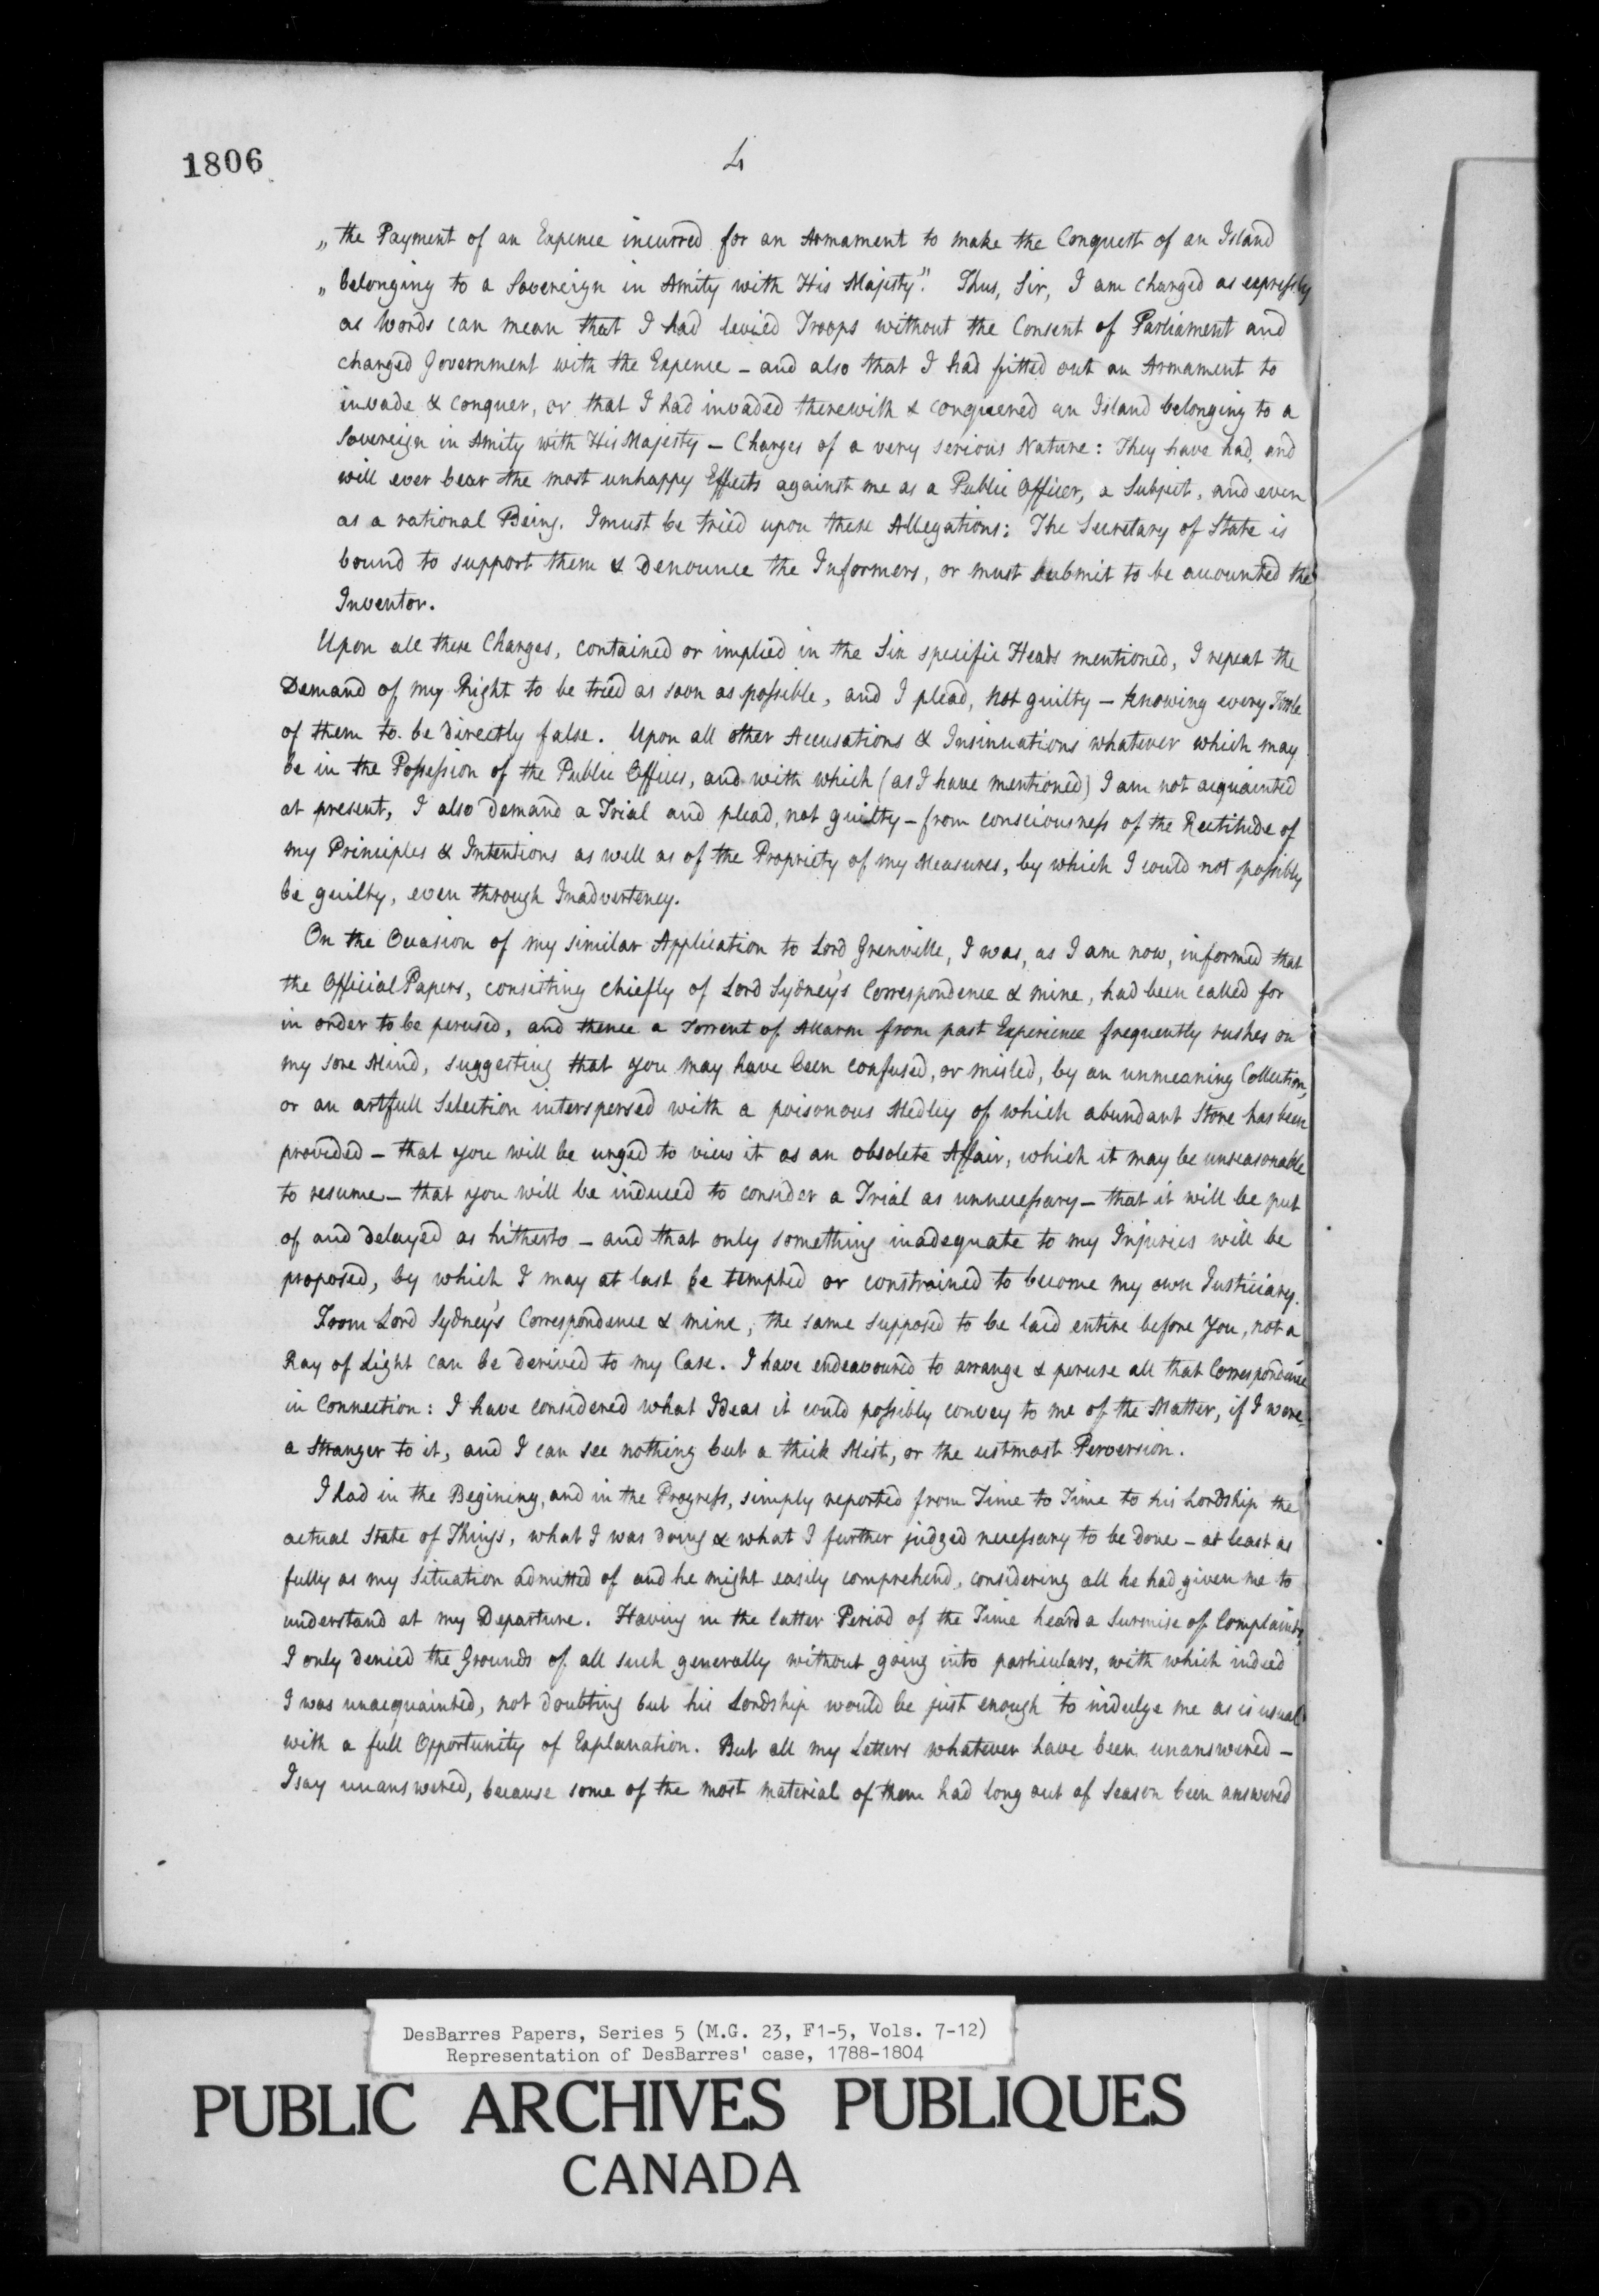 1806
4
„ the Payment of an Expence incurred for an Armament to make the Conquest of an Island
„ belonging to a Sovereign in Amity with His Majesty." Thus, Sir, I am charged as expressly
as Words can mean that I had levied Troops without the Consent of Parliament and
charged Government with the Expence – and also that I had fitted out an Armament to
invade & conquer, or that I had invaded therewith & conquered an Island belonging to a
Sovereign in Amity with His Majesty – Charges of a very serious Nature: They have had, and
will ever bear the most unhappy Effects against me as a Public Officer, a Subject, and even
as a rational Being. I must be tried upon these Allegations: The Secretary of State is
bound to support them & Denounce the Informers, or must submit to be accounted the
Inventor.
Upon all these Charges, contained or implied in the Six specific Heads mentioned, I repeat the
Demand of my Right to be tried as soon as possible, and I plead, not guilty – knowing every Tittle
of them to be directly false. Upon all other Accusations & Insinuations whatever which may
be in the Possession of the Public Offices, and with which (as I have mentioned) I am not acquainted
at present, I also demand a Trial and plead, not guilty – from consciousness of the Rectitude of
my Principles & Intentions as well as of the Propriety of my Measures, by which I could not possibly
be guilty, even through Inadvertency.
On the Occasion of my similar Application to Lord Grenville, I was, as I am now, informed that
the Official Papers, consisting chiefly of Lord Sydney's Correspondence & mine, had been called for
in order to be perused, and thence a Torrent of Allarm from past Experience frequently rushes on
my sore Mind, suggesting that you may have been confused, or misled, by an unmeaning Collection,
or an artfull Selection interspersed with a poisonous Medley of which abundant Store has been
provided – that you will be urged to view it as an obsolete Affair, which it may be unseasonable
to resume – that you will be induced to consider a Trial as unnecessary – that it will be put
of and delayed as hitherto – and that only something inadequate to my Injuries will be
proposed, by which I may at last be tempted or constrained to become my own Justiciary.
From Lord Sydney's Correspondence & mine, the same supposed to be laid entire before You, not a
Ray of Light can be derived to my Case. I have endeavoured to arrange & peruse all that Correspondence
in Connection: I have considered what Ideas it could possibly convey to me of the Matter, if I were
a Stranger to it, and I can see nothing but a thick Mist, or the utmost Perversion.
I had in the Begining, and in the Progress, simply reported from Time to Time to his Lordship the
actual State of Things, what I was doing & what I further judged necessary to be done – at least as
fully as my Situation admitted of and he might easily comprehend, considering all he had given me to
understand at my Departure. Having in the latter Period of the Time heard a Surmise of Complaints,
I only denied the Grounds of all such generally without going into particulars, with which indeed
I was unacquainted, not doubting but his Lordship would be just enough to indulge me as is usual
with a full Opportunity of Explanation. But all my Letters whatever have been unanswered –
I say unanswered, because some of the most material of them had long out of Season been answered
DesBarres Papers, Series 5 (M.G. 23, F1-5, Vols. 7-12)
Representation of DesBarres' case, 1788-1804
PUBLIC ARCHIVES PUBLIQUES
CANADA